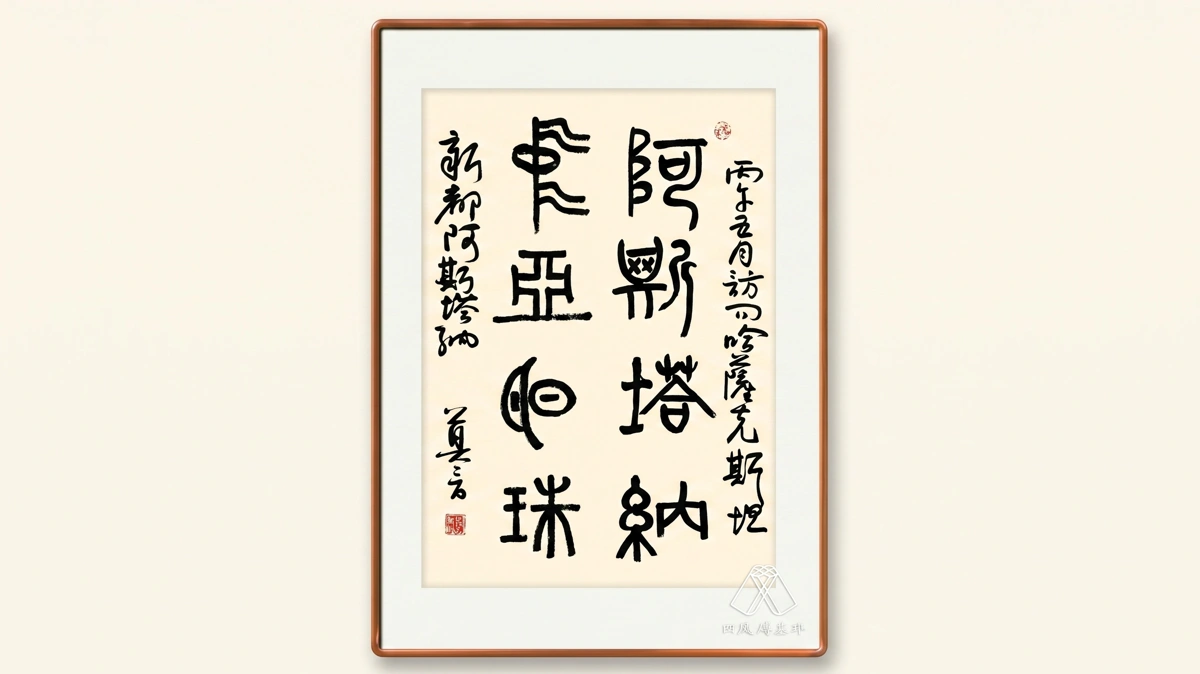 丙午五月訪问哈薩克斯坦
阿斯塔納
中亞明珠
新都阿斯塔納
莫言